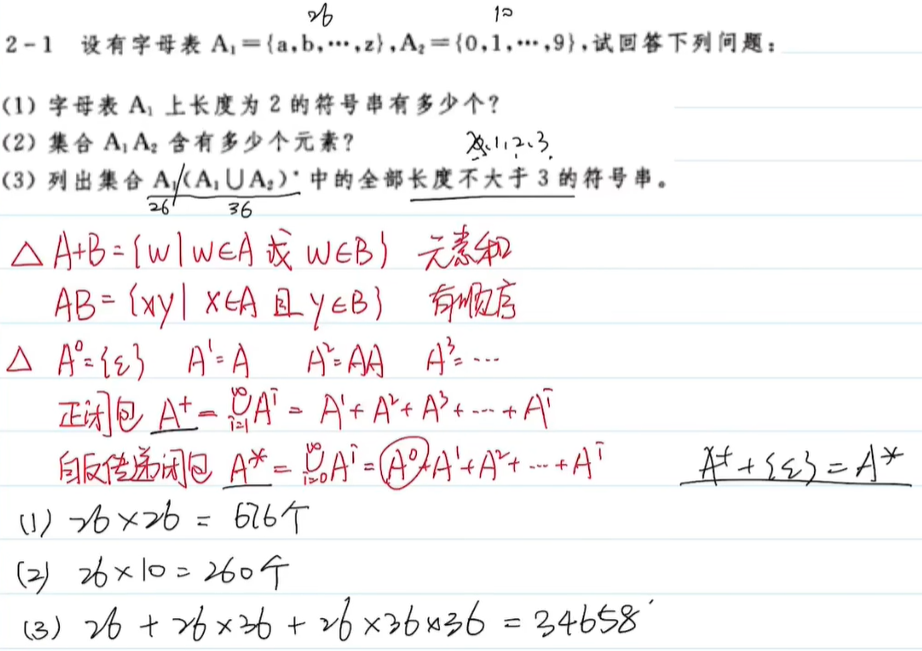 26 10
2-1 设有字母表 A₁={a,b,⋯,z},A₂={0,1,⋯,9},试回答下列问题:
(1) 字母表 A₁ 上长度为 2 的符号串有多少个?
(2) 集合 A₁A₂ 含有多少个元素?
1,2,3
(3) 列出集合 A₁(A₁∪A₂)* 中的全部长度不大于 3 的符号串。
26 36
△ A+B={w|w∈A 或 w∈B} 元素和
AB={xy| x∈A 且 y∈B} 有顺序
△ A⁰={ε} A¹=A A²=AA A³=⋯
正闭包 A⁺=∪(i=1..∞)Aⁱ = A¹+A²+A³+⋯+Aⁱ
自反传递闭包 A*=∪(i=0..∞)Aⁱ=A⁰+A¹+A²+⋯+Aⁱ A⁺+{ε}=A*
(1) 26×26 = 676个
(2) 26×10=260个
(3) 26 + 26×36 + 26×36×36 = 34658